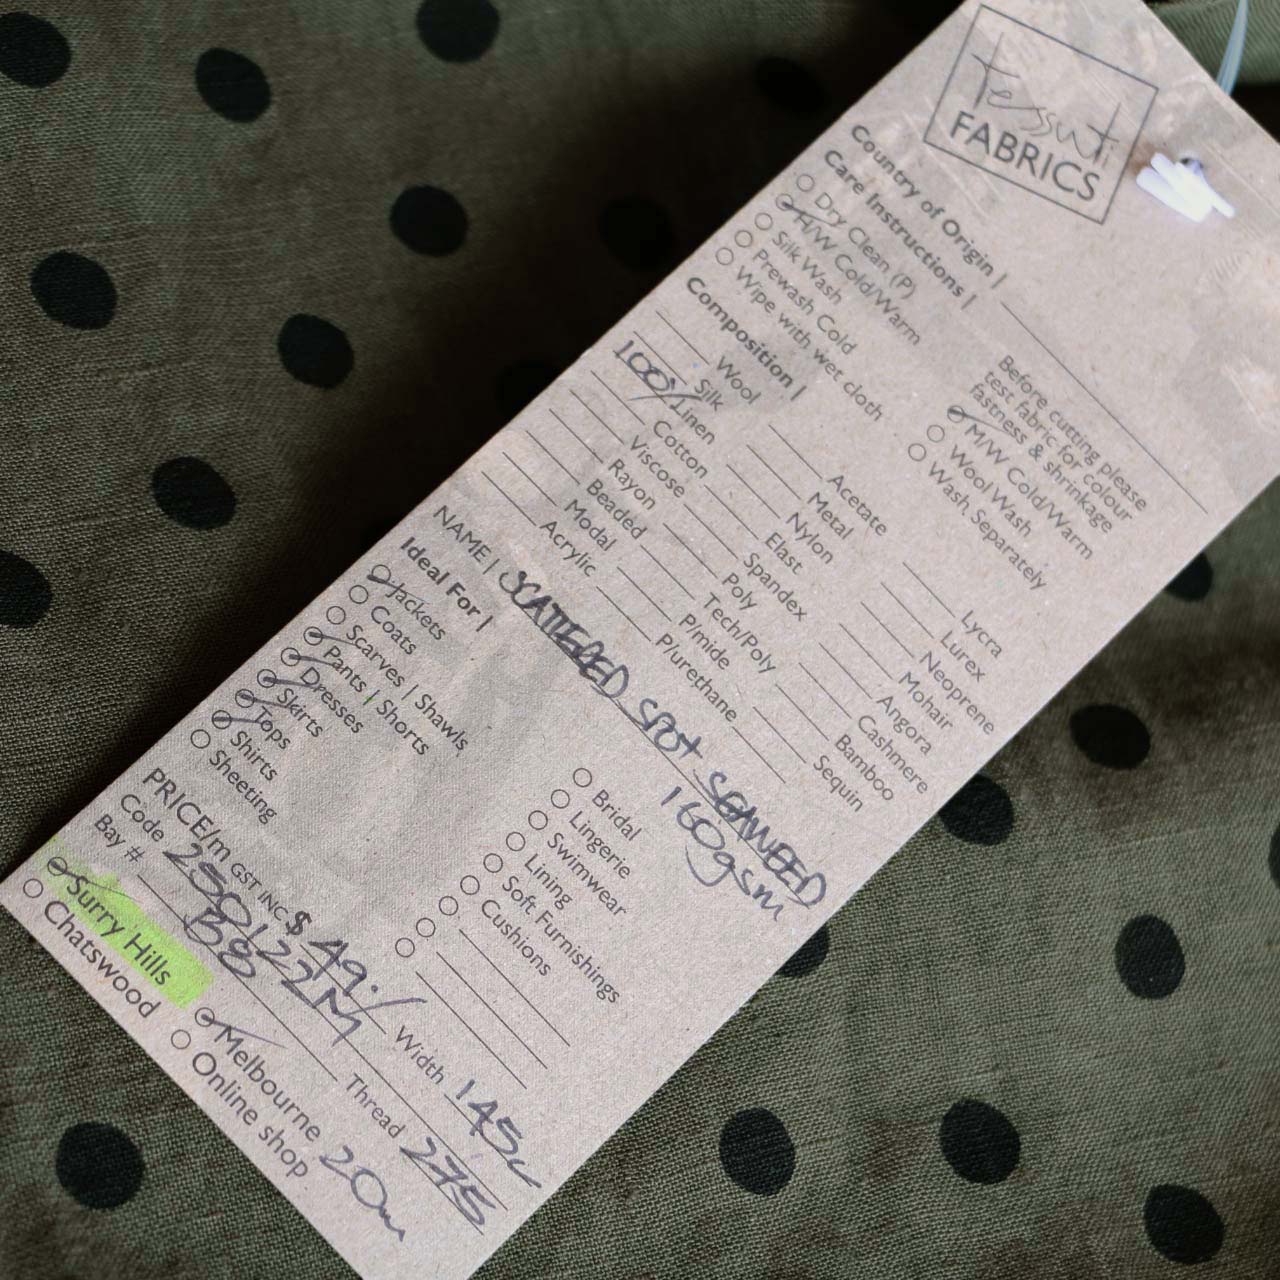 tessuti
FABRICS
Country of Origin |
Care Instructions |
Before cutting please
test fabric for colour
fastness & shrinkage
Dry Clean (P)
H/W Cold/Warm
Silk Wash
Prewash Cold
Wipe with wet cloth
M/W Cold/Warm
Wool Wash
Wash Separately
Composition |
Wool
Silk
100% Linen
Cotton
Viscose
Rayon
Beaded
Modal
Acrylic
Acetate
Metal
Nylon
Elast
Spandex
Poly
Tech/Poly
P/mide
P/urethane
Lycra
Lurex
Neoprene
Mohair
Angora
Cashmere
Bamboo
Sequin
NAME | SCATTERED SPOT SEAWEED
160gsm
Ideal For |
Jackets
Coats
Scarves | Shawls
Pants | Shorts
Dresses
Skirts
Tops
Shirts
Sheeting
Bridal
Lingerie
Swimwear
Lining
Soft Furnishings
Cushions
PRICE/m GST INC $ 49./ Width 145c
Code 250122M Thread 275
Bay # B8
Surry Hills Melbourne 20m
Chatswood Online shop